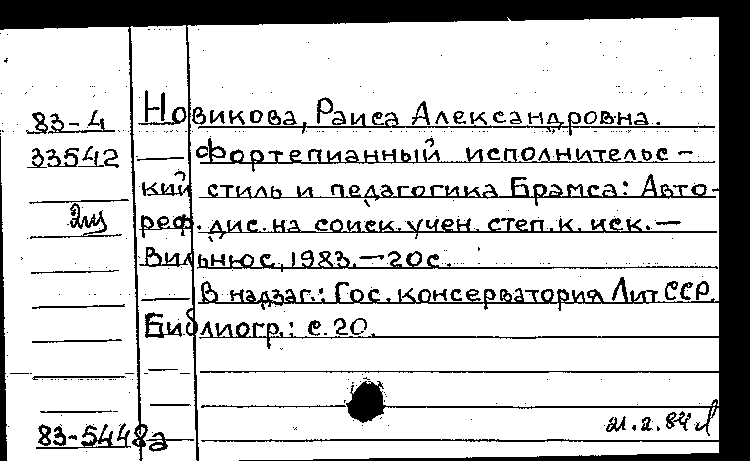 83-4 Новикова, Раиса Александровна.
33542 — Фортепианный исполнительс-
кий стиль и педагогика Брамса: Авто-
реф. дис. на соиск. учен. степ. к. иск. —
Вильнюс, 1983. — 20с.
В надзаг.: Гос. консерватория Лит ССР.
Библиогр.: с. 20.
21.2.84
83-5448а